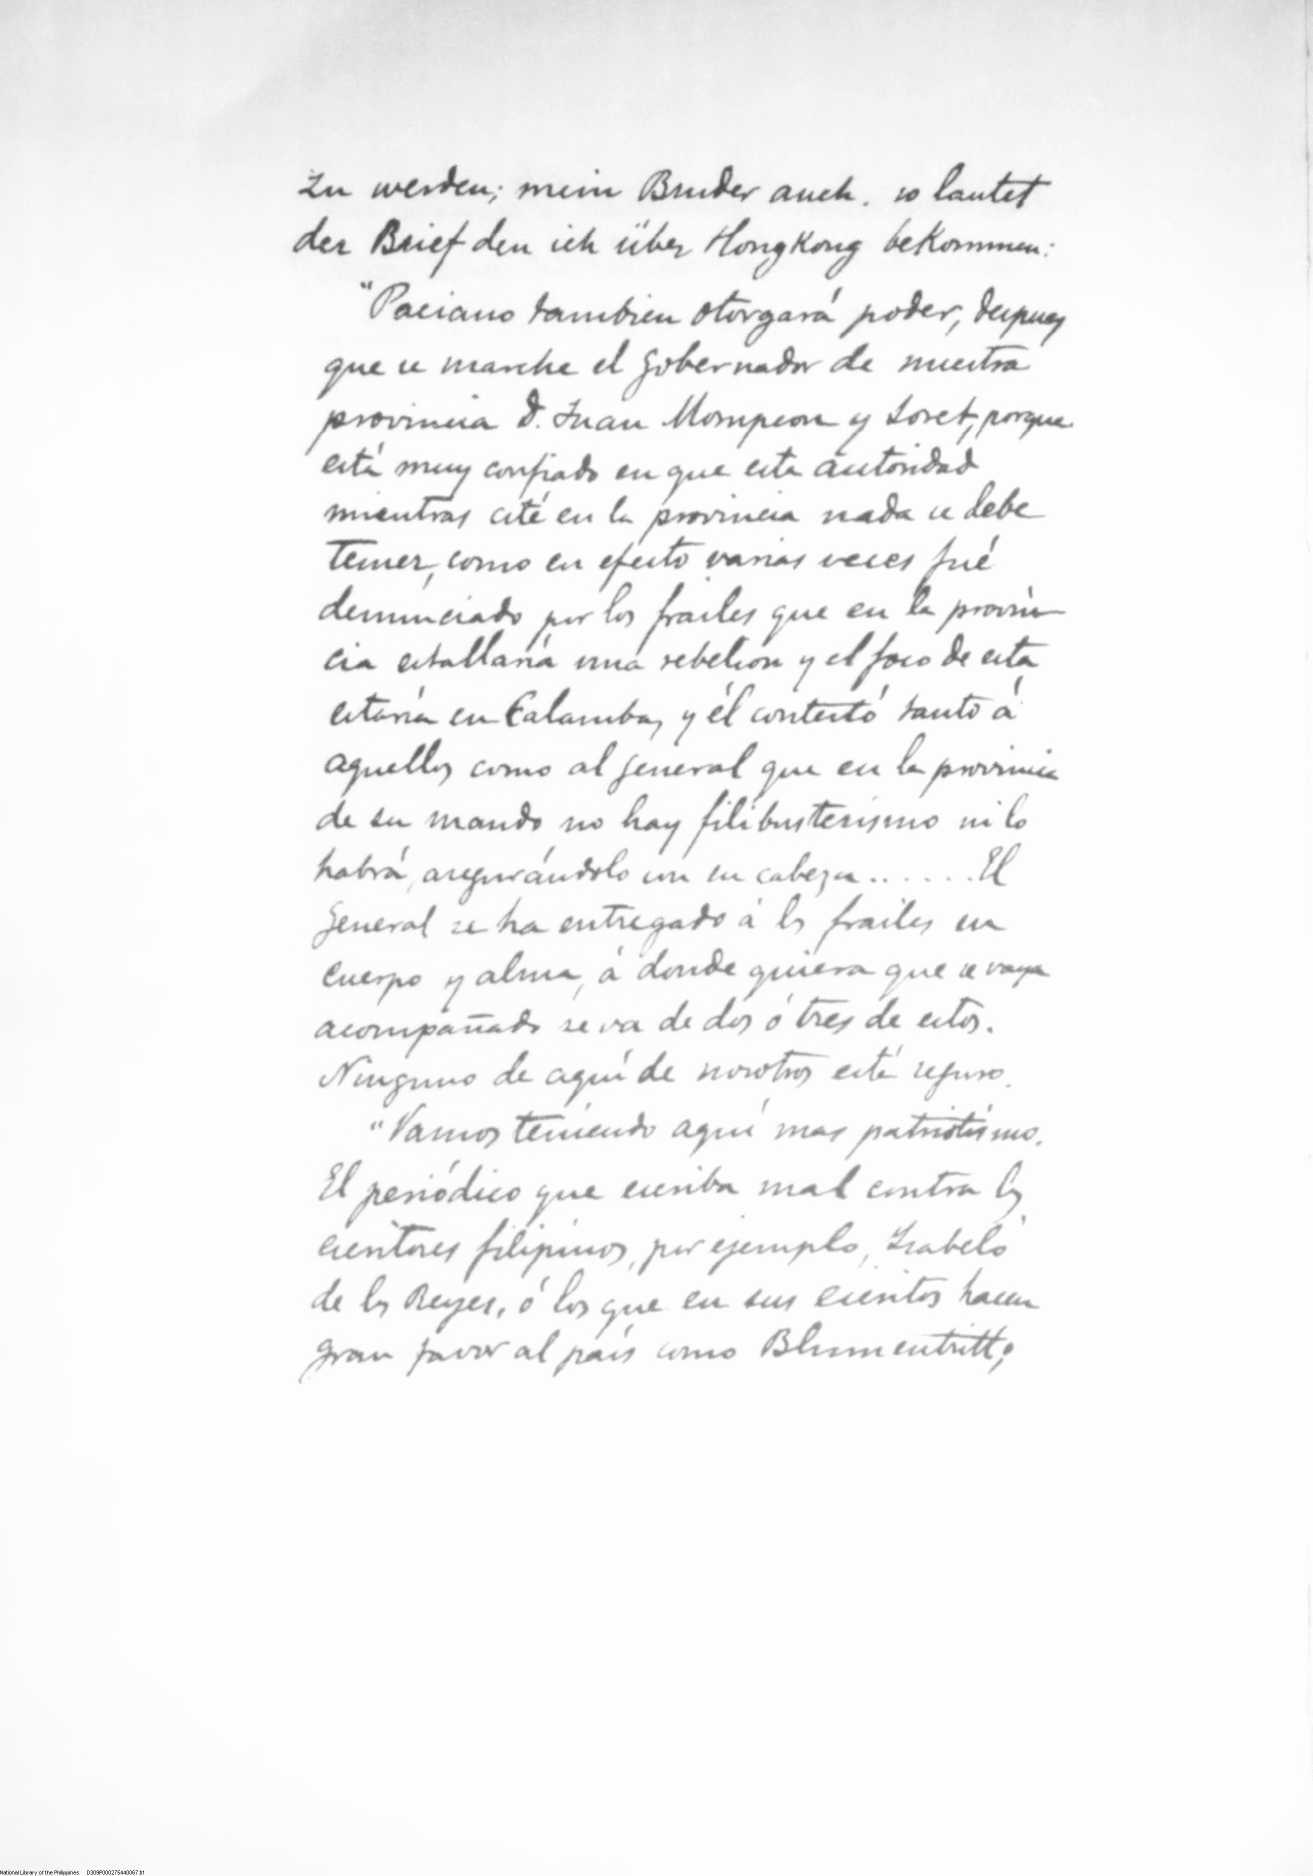 zu werden; mein Bruder auch. so lautet
der Brief den ich über Hongkong bekommen:
"Paciano tambien otorgará poder, despues
que se marche el Gobernador de nuestra
provincia D. Juan Mompeon y Loret, porque
está muy confiado en que esta autoridad
mientras esté en la provincia nada se debe
temer, como en efecto varias veces fué
denunciado por los frailes que en la provin
cia estallaría una rebelion y el foco de esta
estaría en Calamba, y él contestó tanto á
aquellos como al general que en la provincia
de su mando no hay filibusterismo ni lo
habrá, asegurándolo con su cabeza......El
General se ha entregado á los frailes en
cuerpo y alma, á donde quiera que se vaya
acompañado se va de dos ó tres de estos.
Ninguno de aquí de nosotros está seguro.
"Vamos teniendo aquí mas patriotismo.
El periódico que escriba mal contra los
escritores filipinos, por ejemplo, Isabelo
de los Reyes, ó los que en sus escritos hacen
gran favor al país como Blumentritt,
National Library of the Philippines D309P000275440067.tif